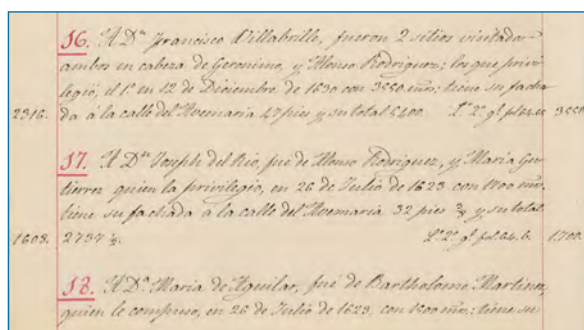 16. A Dⁿ Francisco Villabrille, fueron 2 sitios visitados
ambos en cabeza de Geronimo, y Alonso Rodriguez; los que privi
legió, el 1º en 12 de Diciembre de 1630 con 3550 mrs: tiene su facha
2316. da á la calle del Avemaria 47 pies y su total 5400. Lº 2º gl fol 64. 3550
17. A Dⁿ Joseph del Rio, fué de Alonso Rodriguez, y Maria Gu
tierrez quien la privilegio, en 26 de Julio de 1623 con 1700 mrs.
tiene su fachada á la calle del Avemaria 32 pies y su total
1608. 2737 ½. Lº 2º gl fol. 64. b. 1700.
18. A Dª Maria de Aguilar, fué de Bartholome Martinez,
quien le compuso, en 26 de Julio de 1623, con 1500 mrs: tiene su